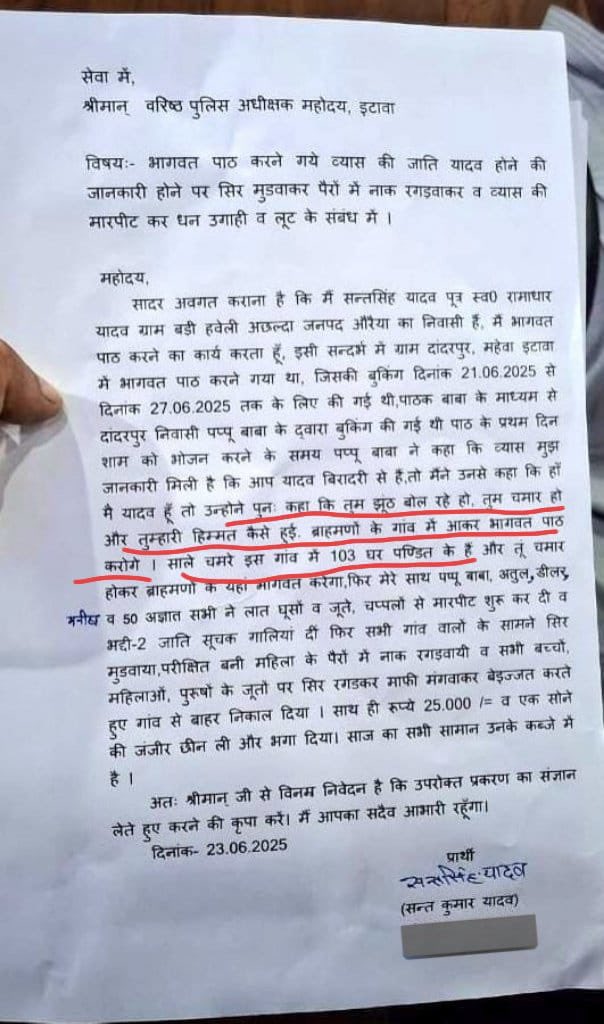 सेवा में,
श्रीमान् वरिष्ठ पुलिस अधीक्षक महोदय, इटावा
विषयः- भागवत पाठ करने गये व्यास की जाति यादव होने की
जानकारी होने पर सिर मुडवाकर पैरों में नाक रगड़वाकर व व्यास की
मारपीट कर धन उगाही व लूट के संबंध में ।
महोदय,
सादर अवगत कराना है कि मैं सन्तसिंह यादव पूत्र स्व0 रामाधार
यादव ग्राम बड़ी हवेली अछल्दा जनपद औरैया का निवासी हैं, मैं भागवत
पाठ करने का कार्य करता हूँ, इसी सन्दर्भ में ग्राम दांदरपुर, महेवा इटावा
में भागवत पाठ करने गया था, जिसकी बुकिंग दिनांक 21.06.2025 से
दिनांक 27.06.2025 तक के लिए की गई थी,पाठक बाबा के माध्यम से
दांदरपुर निवासी पप्पू बाबा के द्वारा बुकिंग की गई थी पाठ के प्रथम दिन
शाम को भोजन करने के समय पप्पू बाबा ने कहा कि व्यास मुझ
जानकारी मिली है कि आप यादव बिरादरी से हैं,तो मैंने उनसे कहा कि हाँ
मै यादव हूँ तो उन्होने पुनः कहा कि तुम झूंठ बोल रहे हो, तुम चमार हो
और तुम्हारी हिम्मत कैसे हुई. ब्राहमणों के गांव में आकर भागवत पाठ
करोगे । साले चमरे इस गांव में 103 घर पण्डित के हैं और तूं चमार
होकर ब्राहमणों के यहां भागवत करेगा,फिर मेरे साथ पप्पू बाबा, अतुल, डीलर,
मनीष व 50 अज्ञात सभी ने लात घूसों व जूते, चप्पलों से मारपीट शुरू कर दी व
भद्दी-2 जाति सूचक गालियां दीं फिर सभी गांव वालों के सामने सिर
मुडवाया,परीक्षित बनी महिला के पैरों में नाक रगडवायी व सभी बच्चों,
महिलाओं, पुरुषों के जूतों पर सिर रगडकर माफी मंगवाकर बेइज्जत करते
हुए गांव से बाहर निकाल दिया । साथ ही रूप्ये 25.000 /= व एक सोने
की जंजीर छीन ली और भगा दिया। साज का सभी सामान उनके कब्जे में
है ।
अतः श्रीमान् जी से विनम्र निवेदन है कि उपरोक्त प्रकरण का संज्ञान
लेते हुए करने की कृपा करें। मैं आपका सदैव आभारी रहूँगा।
दिनांक- 23.06.2025
प्रार्थी
सन्तसिंह यादव
(सन्त कुमार यादव)